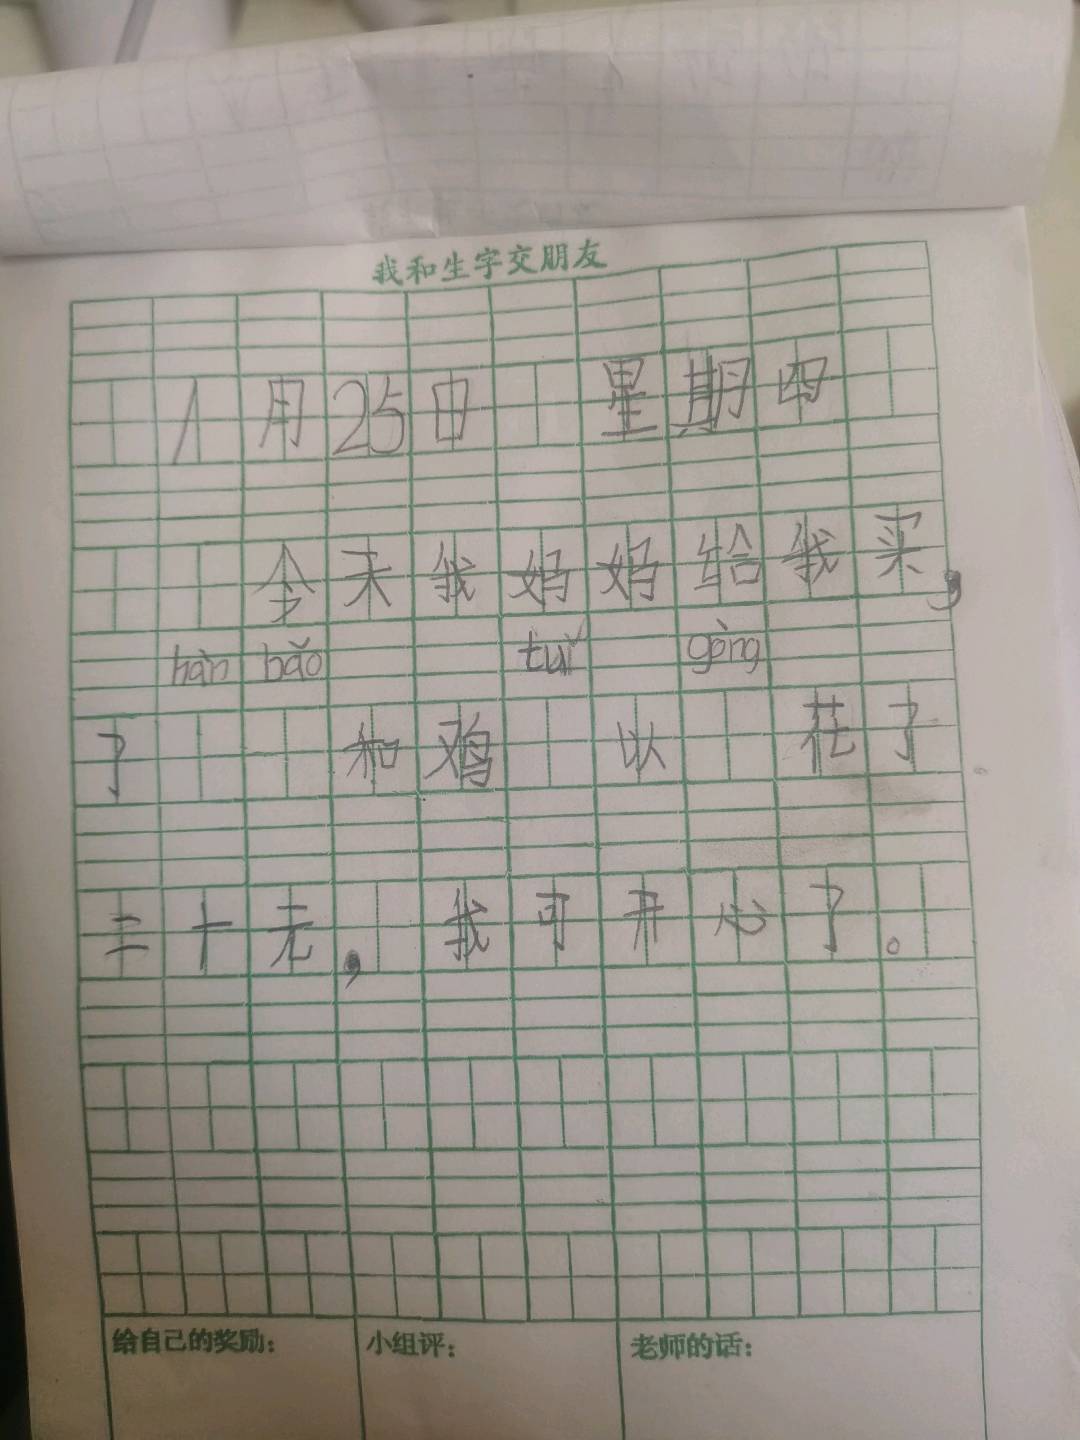 我和生字交朋友
1月25日 星期四
今天我妈妈给我买,
hàn bǎo tuǐ gòng
了 和鸡 以 花了
三十元,我可开心了。
给自己的奖励: 小组评: 老师的话: